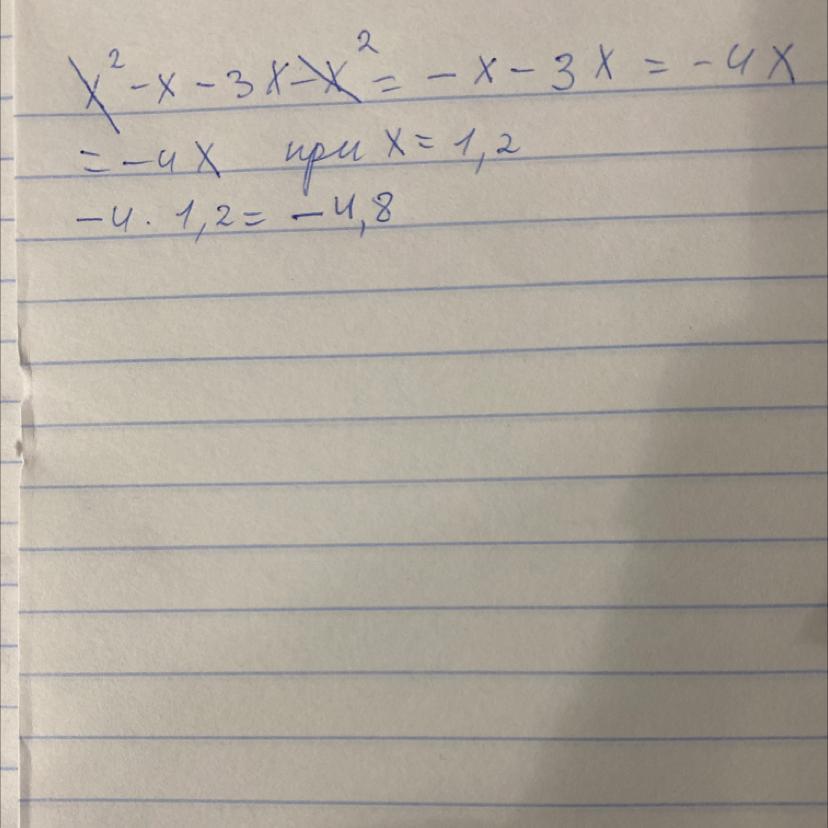 x² - x - 3x - x² = - x - 3x = - 4x
= - 4x при x = 1,2
- 4 · 1,2 = - 4,8